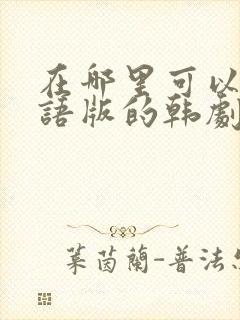 在哪里可以
語版的韩劇
葉茵蘭-普法